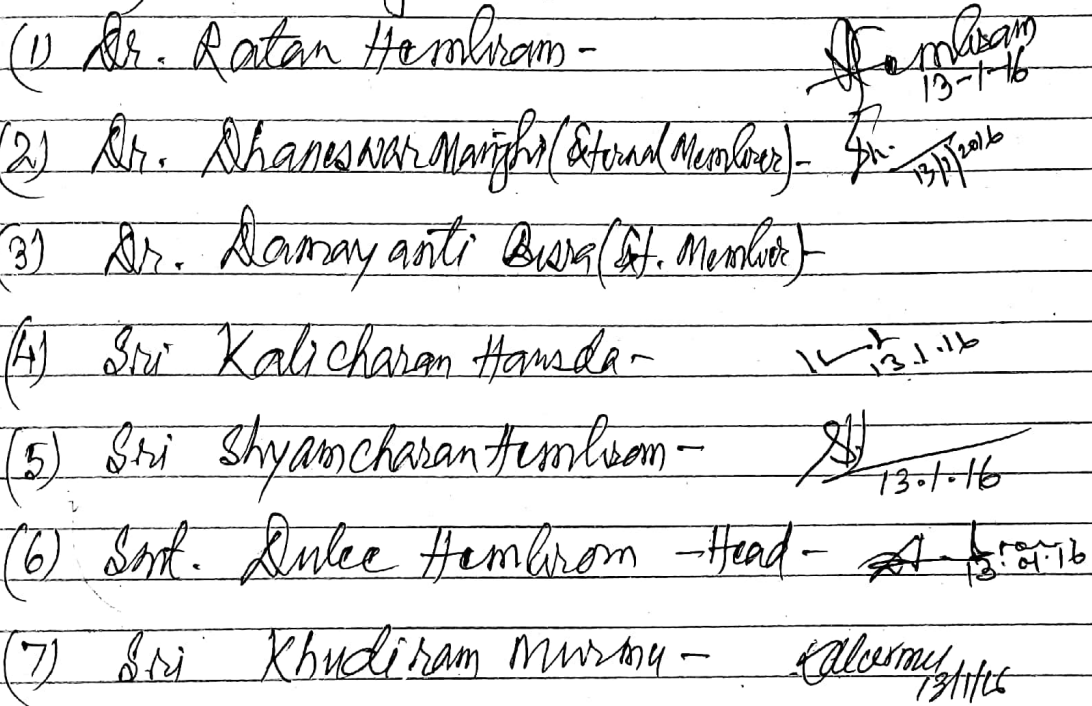 (1) Dr. Ratan Hembram - Hembram 13-1-16
(2) Dr. Dhaneswar Manjhi (External Member) - Dh. 13/1/2016
(3) Dr. Damayanti Besra (Ext. Member) -
(4) Sri Kalicharan Hansda - 13.1.16
(5) Sri Shyamcharan Hembrom - 13.1.16
(6) Smt. Dulee Hembrom - Head - 13.01.16
(7) Sri Khudiram Murmu - 13/1/16